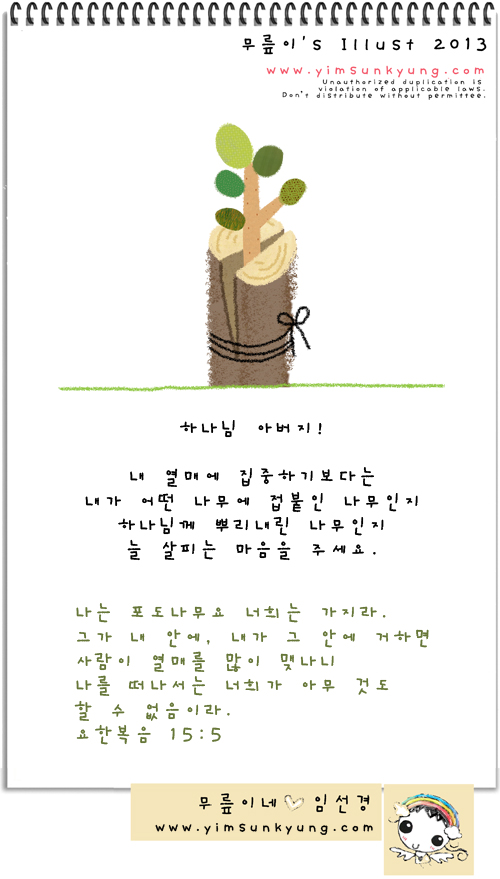 무릎이's Illust 2013
www.yimsunkyung.com
Unauthorized duplication is
violation of applicable laws.
Don't distribute without permittee.
하나님 아버지!
내 열매에 집중하기보다는
내가 어떤 나무에 접붙인 나무인지
하나님께 뿌리내린 나무인지
늘 살피는 마음을 주세요.
나는 포도나무요 너희는 가지라.
그가 내 안에, 내가 그 안에 거하면
사람이 열매를 많이 맺나니
나를 떠나서는 너희가 아무 것도
할 수 없음이라.
요한복음 15:5
무릎이네♡임선경
www.yimsunkyung.com